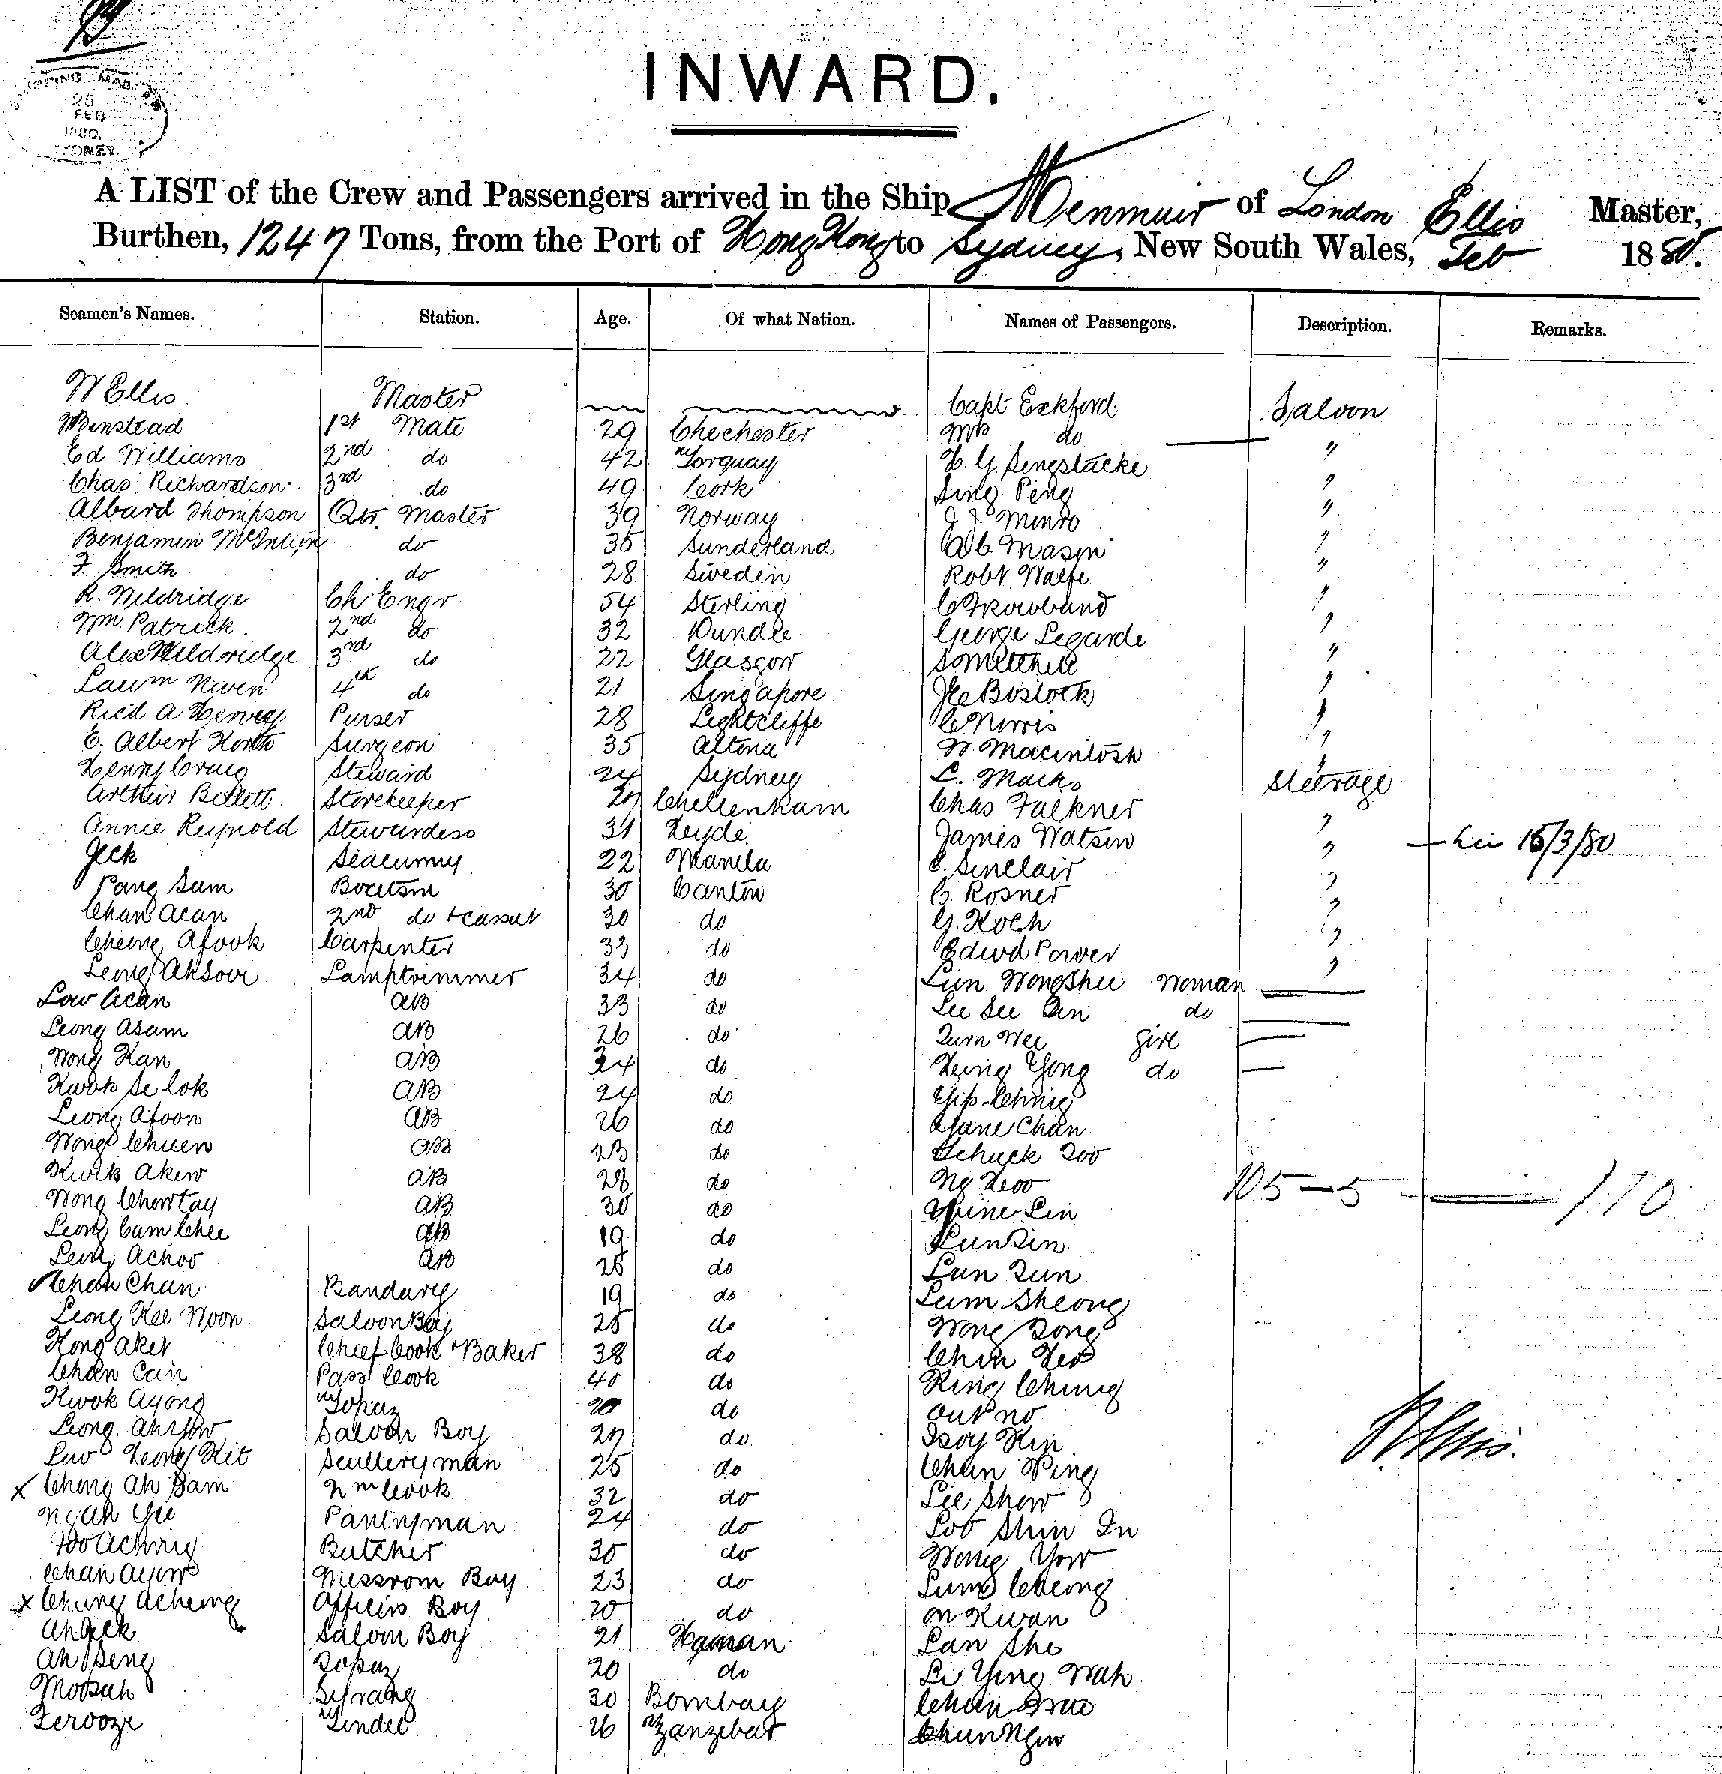 25
FEB
1880.
SYDNEY.
INWARD.
A LIST of the Crew and Passengers arrived in the Ship Menmuir of London Ellis Master,
Burthen, 1247 Tons, from the Port of Hong Kong to Sydney, New South Wales, Feb 1880.
Seamen's Names. Station. Age. Of what Nation. Names of Passengers. Description. Remarks.
W Ellis. Master Capt Eckford. Saloon
Winstead 1st Mate 29 Chechester Mrs do
Ed Williams 2nd do 42 Torquay H. G. Sengstacke "
Chas. Richardson 3rd do 49 Cork Sing Ping "
Albard Thompson Qtr. Master 39 Norway Munro "
Benjamin do 35 Sunderland Mason "
F. Smith do 28 Sweden Robt "
R. Meldridge Ch Engr 54 Sterling "
Wm. Patrick. 2nd do 32 Dundee George Legarde "
Alex Meldridge 3rd do 22 Glasgow S Mitchell "
Niven 4th do 21 Singapore Bostock "
Ricd A Hervey Purser 28 Lightcliffe C Norris "
E. Albert Korth Surgeon 35 Altona W. Macintosh "
Henry Craig Steward 24 Sydney L. Marks Steerage
Arthur Billett. Storekeeper 29 Cheltenham Chas Falkner "
Annie Reynold Stewardess 31 James Watson "
Jeck Seacunny 22 Manila C. Sinclair " 15/3/80
Pang Sam Boatsn 30 Canton C. Rosner "
Chan Acan 2nd do + Cassut 30 do G. Koch "
Cheong Afook Carpenter 33 do Edwd Power "
Leong Lamptrimmer 34 do Lun Wong Shee Woman
Low Acan AB 33 do Lee See do
Leong Asam AB 26 do Wee Girl
Wong Kan AB 24 do Yong do
Kwok Se Lok AB 24 do Yip Ching
Leong Afoon AB 26 do Chan
Wong Chuen AB 23 do Schuck Too
Kwik Akew AB 28 do Ng 105 — 5 — 110
Wong Chow Tay AB 30 do Lin
Leong Cam Chee AB 19 do
Leong Achoo AB 25 do Lan
Chan Chan Bandary 19 do Lum Sheong
Leong Kee Noon Saloon Boy 25 do Wong Song
Kong Aket Chief Cook & Baker 38 do Chin
Chan Cain Pass Cook 40 do King Chung
Kwok Ayong Topaz 20 do
Leong Saloon Boy 29 do Tsoy Kin
Low Leong Kit Scullery man 25 do Chan Ping
x Chong Ah Sam Cook 32 do Lee Show
Ng Ah Yee Pantryman 24 do Loo Shin
Butcher 30 do Wong Yow
Chan Messroom Boy 23 do Lum Cheong
x Chung Acheong Officers Boy 20 do Kwan
Ah Jeck Saloon Boy 21 Hainan Lan She
Ah Seng Topaz 20 do Li Ying Wah
Moosah Syrang 30 Bombay Chan
Ferooze Tindel 26 Zanzibar Chun